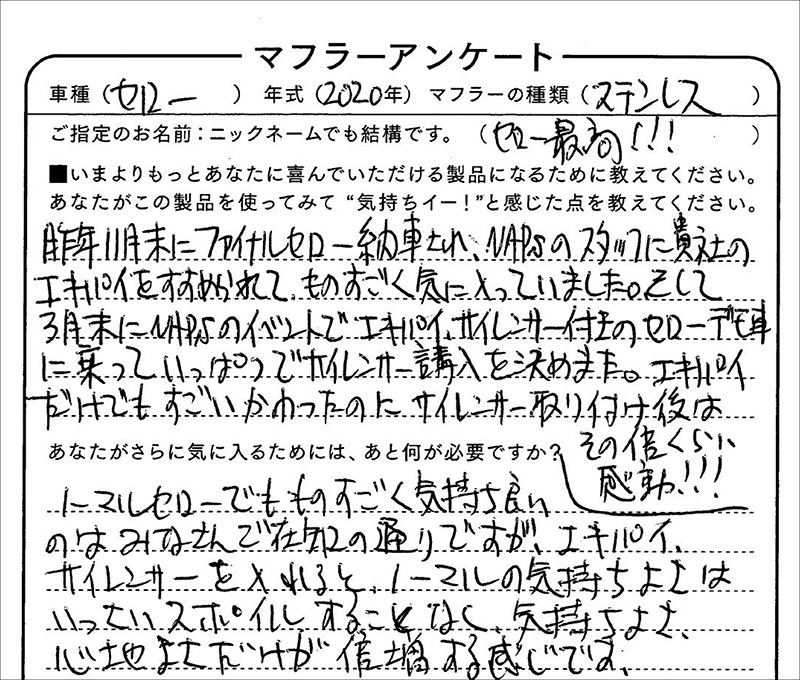 マフラーアンケート
車種（セロー） 年式（2020年） マフラーの種類（ステンレス）
ご指定のお名前：ニックネームでも結構です。（セロー最高!!!）
■いまよりもっとあなたに喜んでいただける製品になるために教えてください。
あなたがこの製品を使ってみて “気持ちイー！”と感じた点を教えてください。
昨年11月末にファイナルセロー納車され、NAPSのスタッフに貴社の
エキパイをすすめられて、ものすごく気に入っていました。そして
3月末にNAPSのイベントでエキパイ、サイレンサー付きのセローデモ車
に乗っていっぱつでサイレンサー購入を決めました。エキパイ
だけでもすごいかわったのにサイレンサー取り付け後は
その倍くらい
感動!!!
あなたがさらに気に入るためには、あと何が必要ですか？
ノーマルセローでもものすごく気持ち良い
のはみなさんご存知の通りですが、エキパイ、
サイレンサーを入れると、ノーマルの気持ちよさは
いっさいスポイルすることなく、気持ちよさ、
心地よさだけが倍増する感じです。